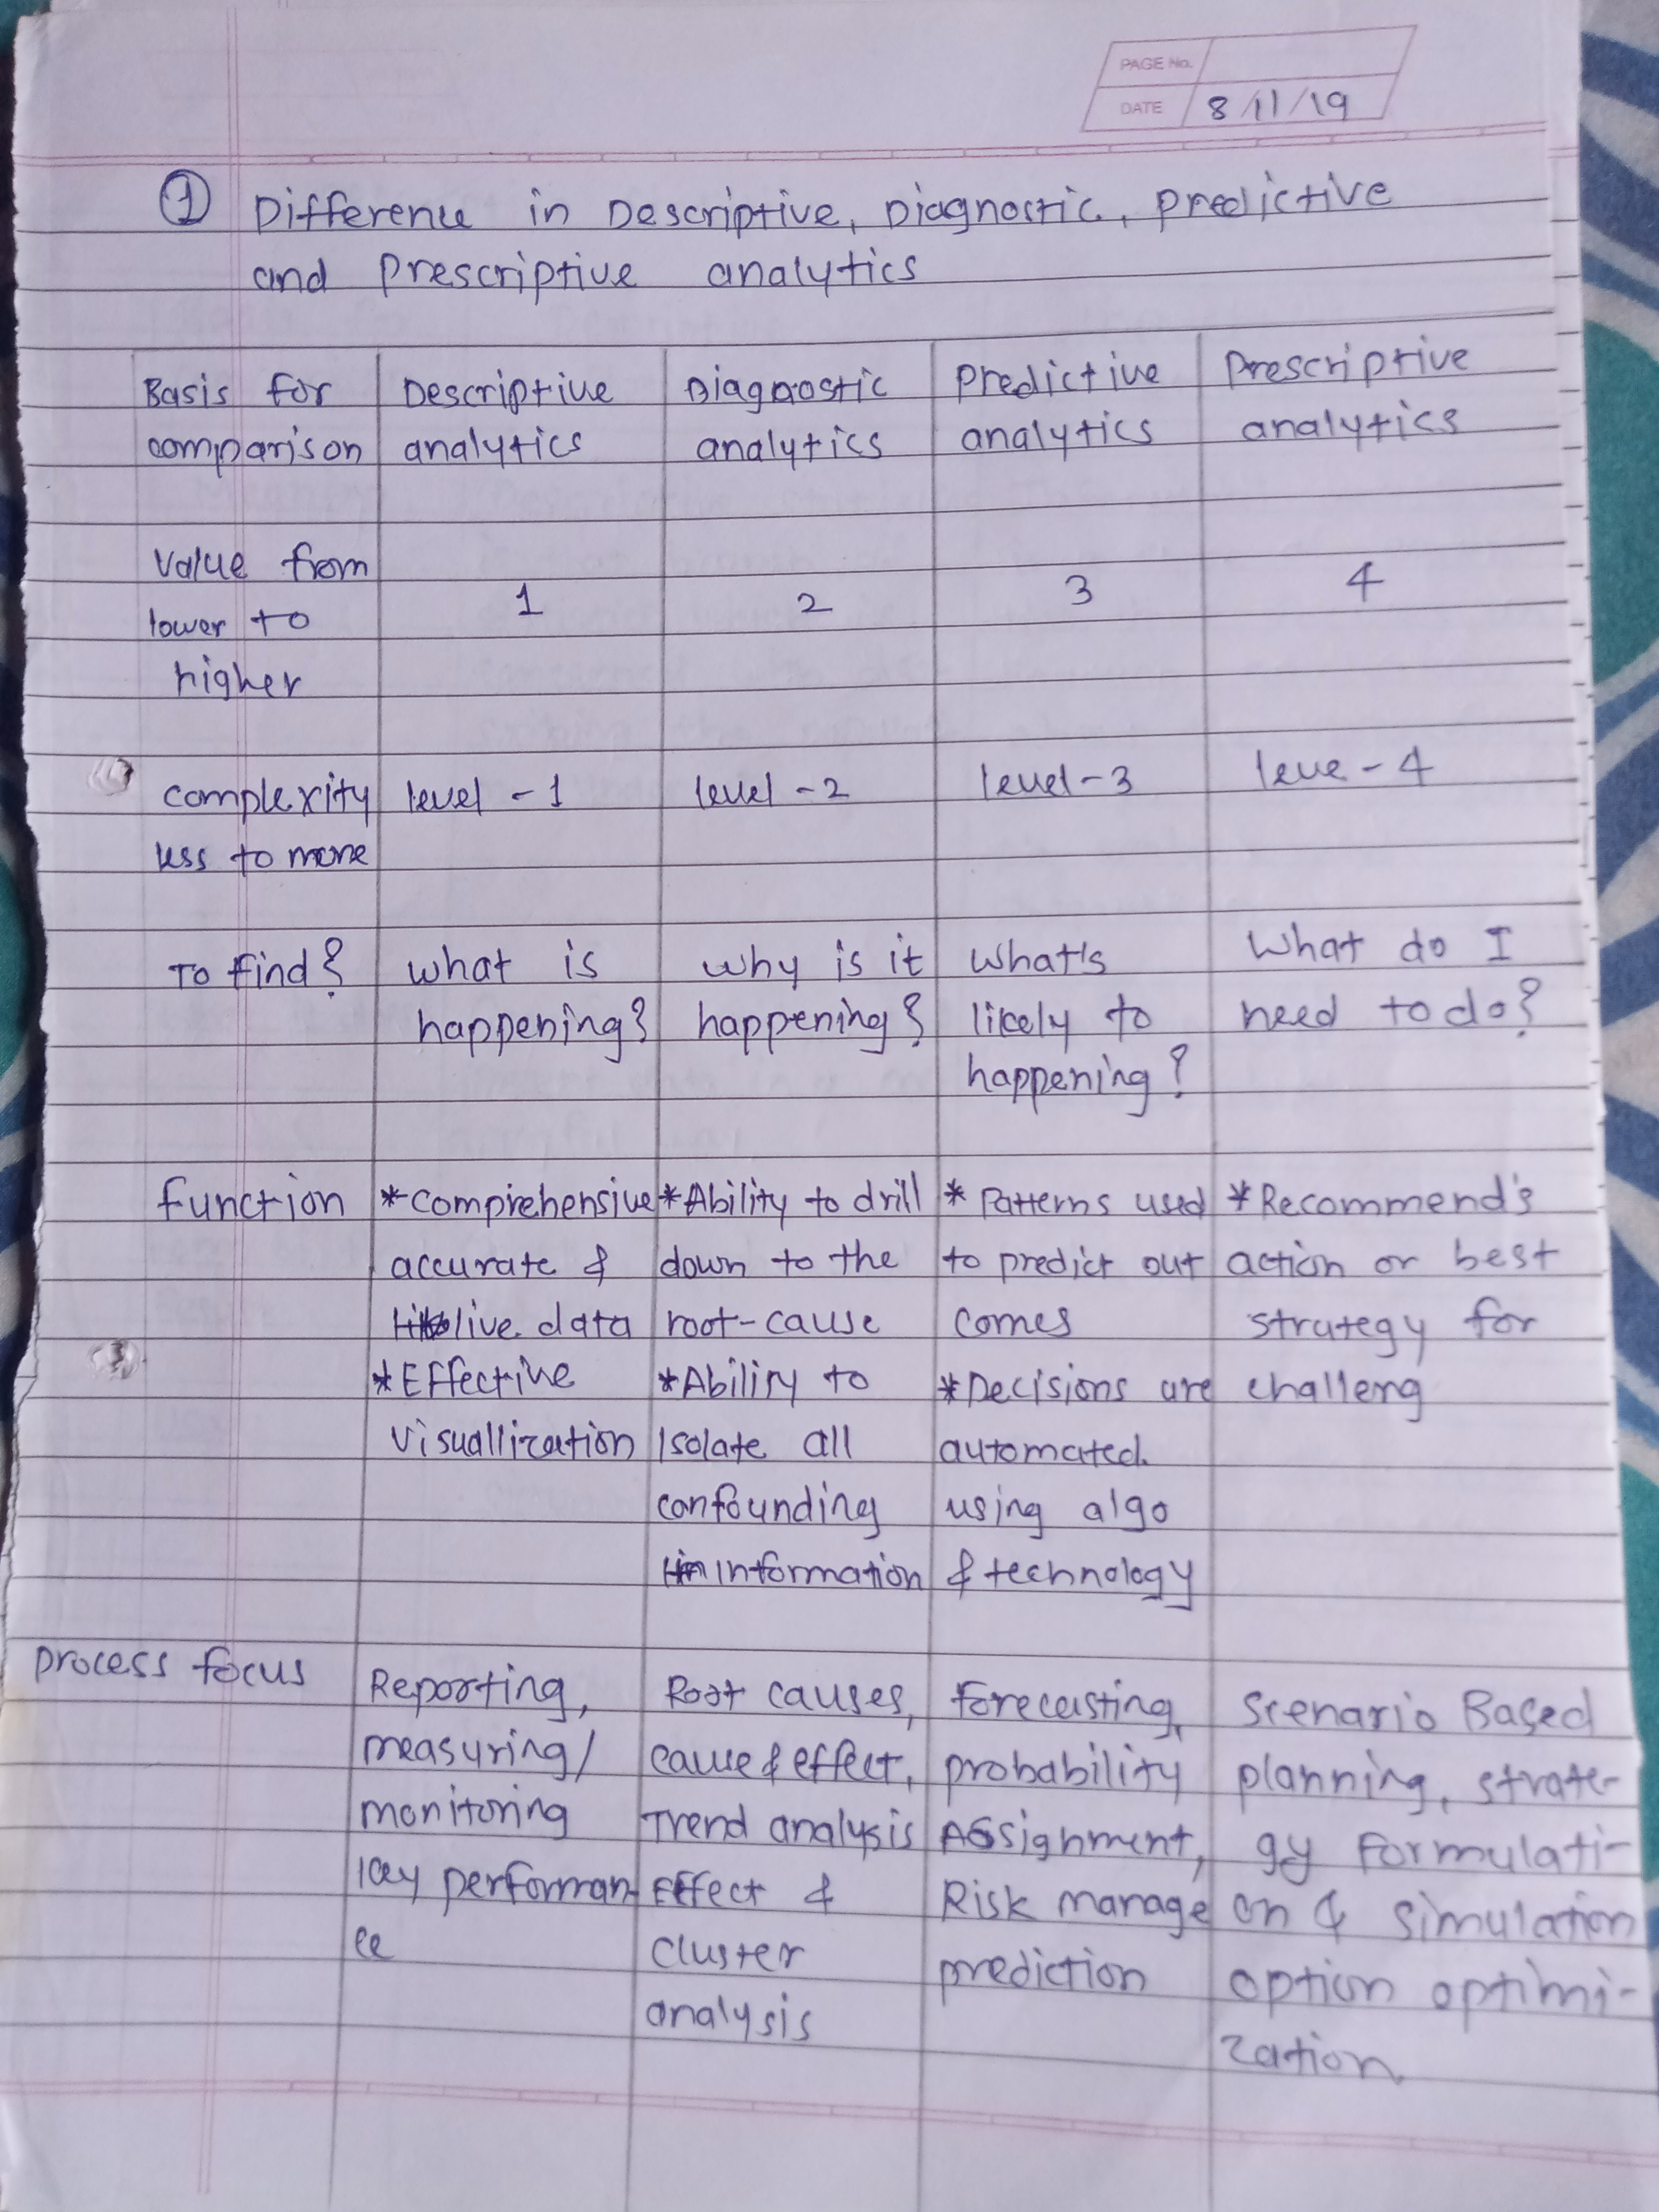 PAGE No.
DATE 8/11/19
① Difference in Descriptive, Diagnostic, predictive
and prescriptive analytics
Basis for comparison
Descriptive analytics
Diagnostic analytics
predictive analytics
Prescriptive analytics
Value from
lower to
higher
1
2
3
4
complexity
less to more
level - 1
level - 2
level - 3
leve - 4
To find?
what is
happening?
why is it
happening?
What's
likely to
happening?
What do I
need to do?
function
* comprehensive
accurate &
live data
* Effective
visuallization
* Ability to drill
down to the
root-cause
* Ability to
Isolate all
confounding
information
* Patterns used
to predict out
comes
* Decisions are
automated.
using algo
& technology
* Recommend's
action or best
strategy for
challeng
process focus
Reporting,
measuring/
monitoring
key performan
ce
Root causes,
cause & effect,
Trend analysis
Effect &
cluster
analysis
forecasting,
probability
Assignment,
Risk manage
prediction
Scenario Based
planning, strate-
gy formulati-
on & simulation
option optimi-
zation.